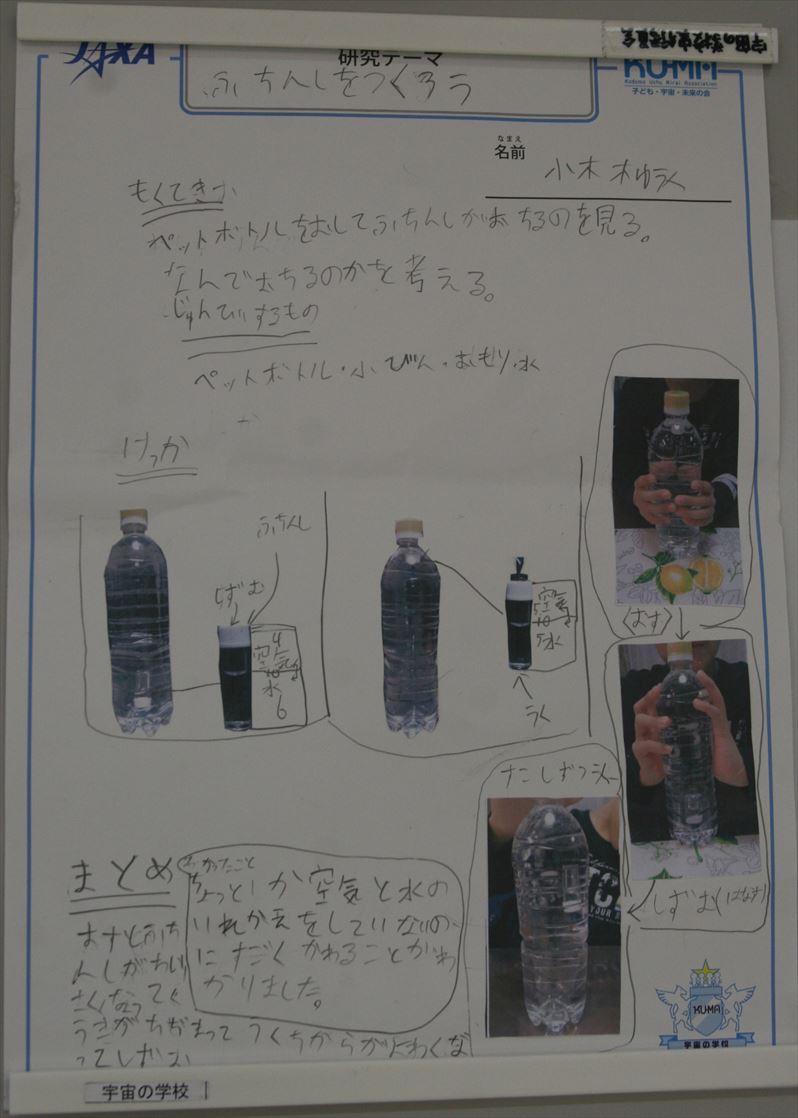 JAXA
研究テーマ
宇宙の学校
KU-MA
Kodomo Uchu Mirai Association
子ども・宇宙・未来の会
ふちんしをつくろう
なまえ
名前
小木
もくてき
ペットボトルをおしてふちんしがおちるのを見る。
なんでおちるのかを考える。
じゅんびするもの
ペットボトル・小びん・おもり・水
けっか
ふちんし
しずむ
4
空気
10
水
6
空気
5
10
5水
うく
(おす)
しずむ(はなす)
すこしずつ
まとめ
わかったこと
ちょっとしか空気と水の
いれかえをしていないの
にすごくかわることがわ
かりました。
おすとふち
んしがちい
さくなってく
うきがちぢまってうくちからがよわくな
ってしずむ
KUMA
宇宙の学校
宇宙の学校